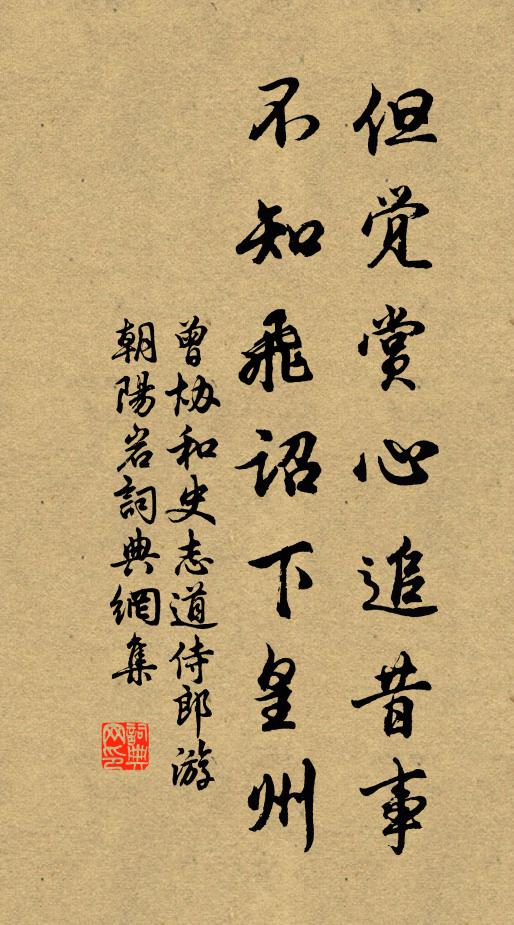 但觉赏心追昔事
不知飛詔下皇州
曾协和史志道侍郎游
朝陽岩詞典網集
詞典网印